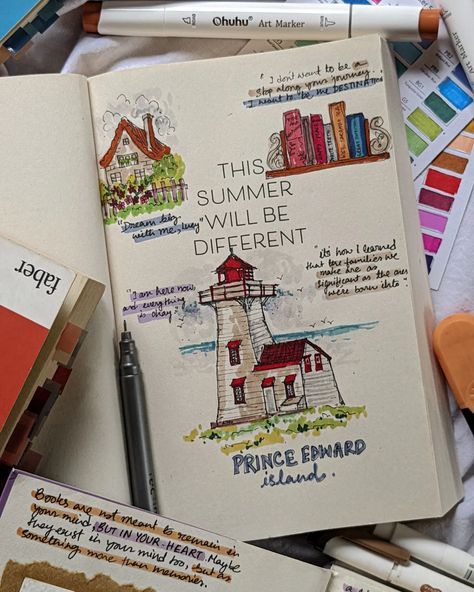 Ohuhu Art Marker
"I don't want to be a
stop along your journey.
I want to be the DESTINATION
THIS
SUMMER
WILL BE
DIFFERENT
"Dream big
with me, Lucy"
"it's how I learned
that the families we
make are as
significant as the ones
were born into."
"I am here now
and everything
is okay"
PRINCE EDWARD
island.
faber
Books are not meant to remain in
your mind, BUT IN YOUR HEART. Maybe
they exist in your mind too, but as
something more than memories.